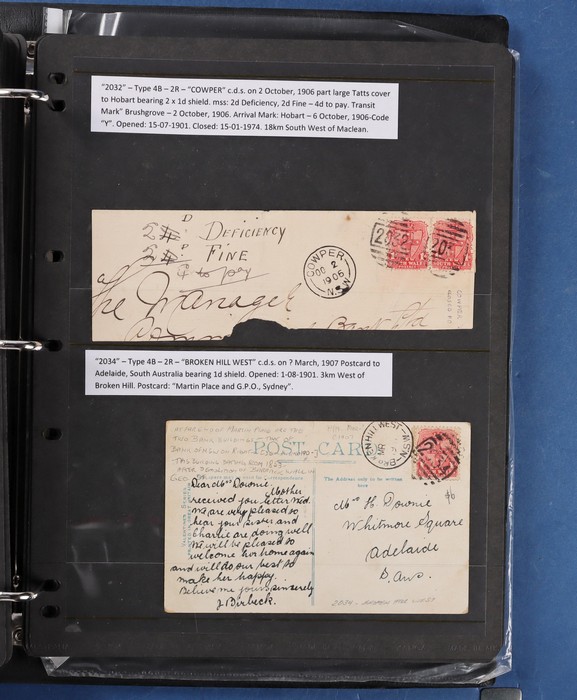 "2032" – Type 4B – 2R – "COWPER" c.d.s. on 2 October, 1906 part large Tatts cover
to Hobart bearing 2 x 1d shield. mss: 2d Deficiency, 2d Fine – 4d to pay. Transit
Mark" Brushgrove – 2 October, 1906. Arrival Mark: Hobart – 6 October, 1906-Code
"Y". Opened: 15-07-1901. Closed: 15-01-1974. 18km South West of Maclean.
D DEFICIENCY
D FINE
to pay
COWPER
OC 2
1906
N.S.W
2032
The Manager
Bank Ltd
"2034" – Type 4B – 2R – "BROKEN HILL WEST" c.d.s. on ? March, 1907 Postcard to
Adelaide, South Australia bearing 1d shield. Opened: 1-08-1901. 3km West of
Broken Hill. Postcard: "Martin Place and G.P.O., Sydney".
POST CARD
BROKEN HILL WEST N.S.W
The Address only to be written
here
Dear Mrs Downie. Mother
received your letter Wed.
We are very pleased to
hear your sister and
Charlie are doing well
We will be pleased to
welcome her home again
and will do our best to
make her happy.
Believe me yours sincerely
J Birbeck.
Mrs H. Downie
Whitmore Square
Adelaide
S. Aus.
2034 - BROKEN HILL WEST